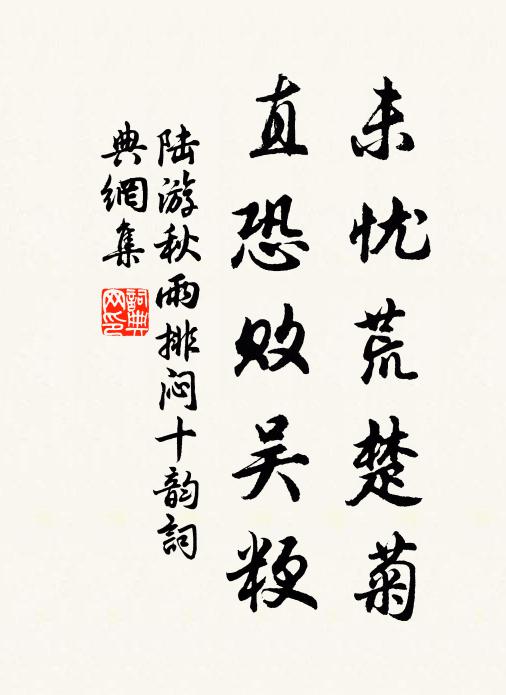 未忧荒楚菊
直恐败吴粳
陆游秋雨排闷十韵詞
典網集
詞典
网印